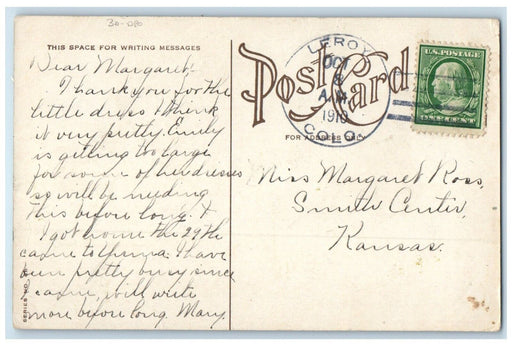 30-080
THIS SPACE FOR WRITING MESSAGES
Post Card
FOR ADDRESS ONLY
LEROY
OCT
8
A.M.
1910
COLO.
U.S. POSTAGE
ONE CENT
Dear Margaret:-
I thank you for the
little dress I think
it very pretty. Emily
is getting too large
for some of her dresses
so will be needing
this before long.
I got home the 29th
came to Yuma. I have
been pretty busy since
I came, will write
more before long. Mary.
Miss Margaret Ross,
Smith Center,
Kansas.
SERIES NO.